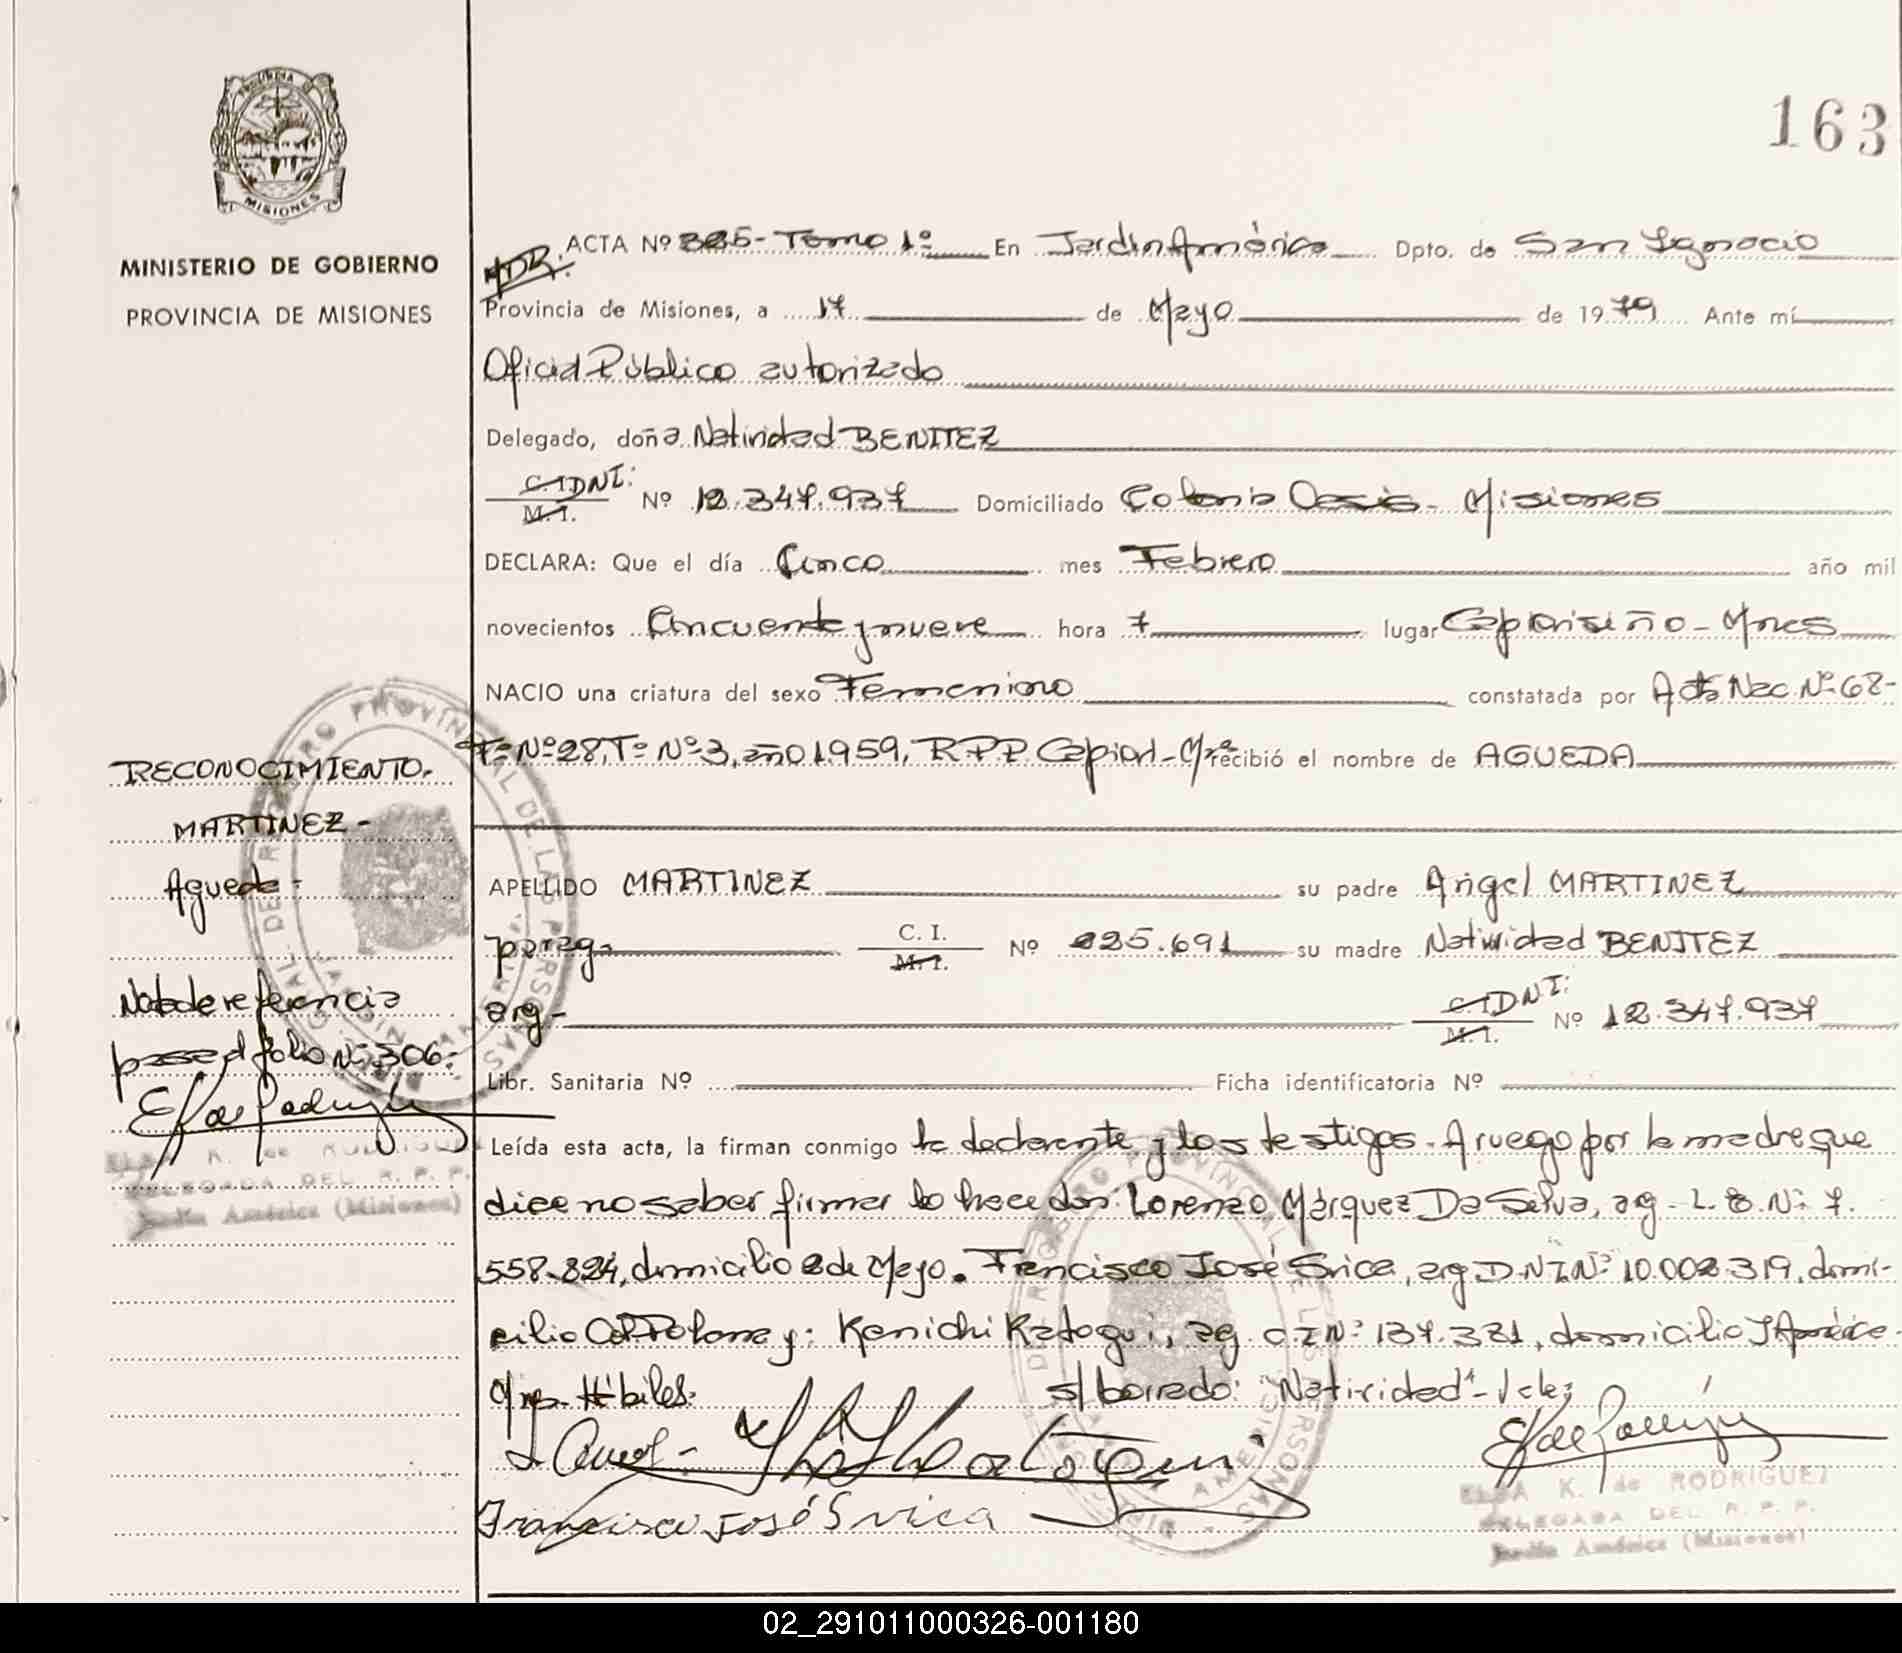 163
PROVINCIA
MISIONES
MINISTERIO DE GOBIERNO
PROVINCIA DE MISIONES
ACTA Nº 325 - Tomo 1º En Jardín América Dpto. de San Ignacio
Provincia de Misiones, a 17 de Mayo de 1979 Ante mí
Oficial Público autorizado
Delegado, doña Natividad BENITEZ
C.I. DNI: M.I. Nº 12.347.937 Domiciliado Colonia Oasis - Misiones
DECLARA: Que el día Cinco mes Febrero año mil
novecientos Cincuenta y nueve hora 7 lugar Caplonisiño - Mnes
NACIO una criatura del sexo Femenino constatada por Acta Nac. Nº 68-
Fº Nº 28, Tº Nº 3, año 1.959, R.P.P. Capioví - Mnes recibió el nombre de AGUEDA
RECONOCIMIENTO.
MARTINEZ -
Agueda -
APELLIDO MARTINEZ su padre Angel MARTINEZ
parag- C. I. M. I. Nº 225.691 su madre Natividad BENITEZ
arg- C.I. DNI: M. I. Nº 12.347.937
Nota de referencia
pasa al folio Nº 306-
Libr. Sanitaria Nº Ficha identificatoria Nº
Leída esta acta, la firman conmigo la declarante y los testigos. A ruego por la madre que
dice no saber firmar lo hace don: Lorenzo Márquez Da Silva, arg - L. E. Nº 7.
558.824, domicilio 2 de Mayo. Francisco José Srica, arg D.N.I Nº 10.002.319, domi-
cilio Col. Polana y: Kenichi Katogui, arg. C.I Nº 137.321, domicilio J América -
Mnes. Hábiles. s/borrado: "Natividad" - Vale;
Francisco José Srica
ELSA K. de RODRIGUEZ
DELEGADA DEL R. P. P.
Jardín América (Misiones)
ELSA K. de RODRIGUEZ
DELEGADA DEL R. P. P.
Jardín América (Misiones)
REGISTRO PROVINCIAL DE LAS PERSONAS
JARDIN AMERICA
02_291011000326-001180